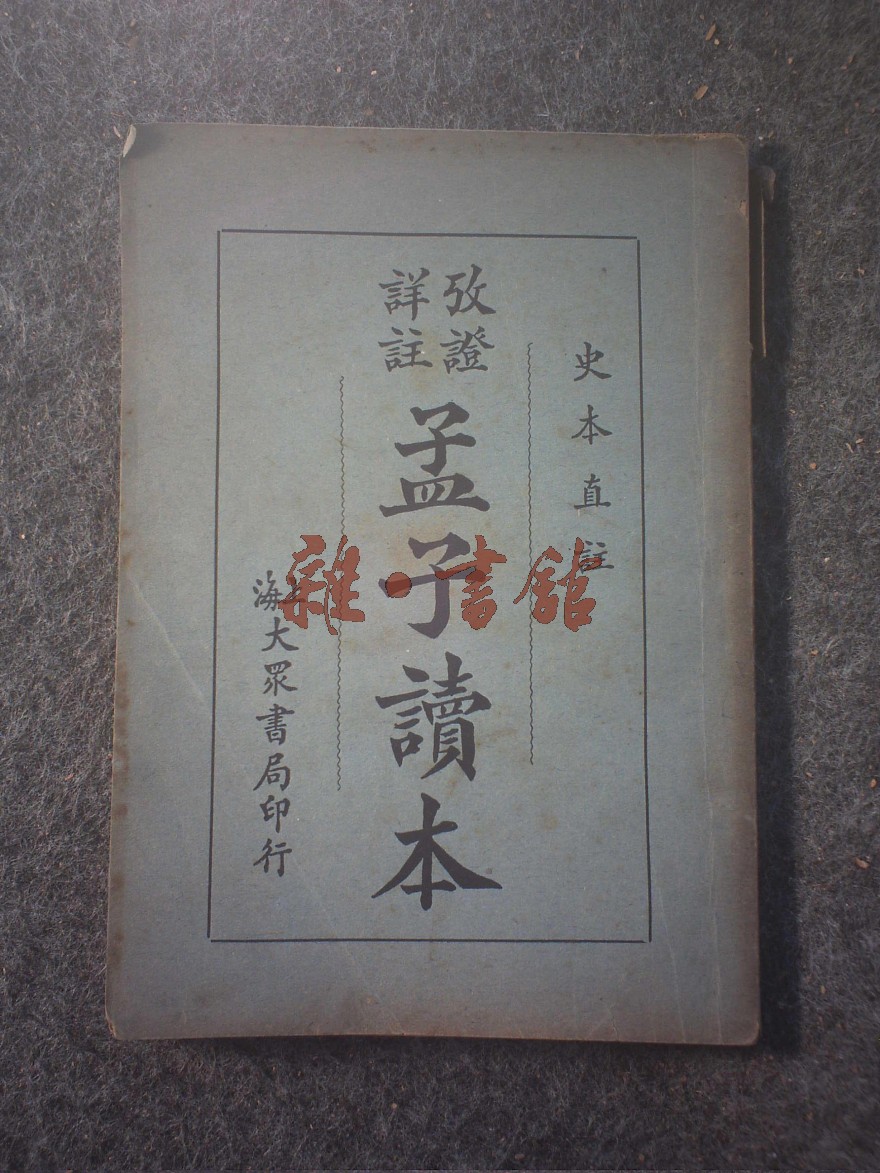 史本直註
攷證
詳註
孟子讀本
上海大眾書局印行
雜・書館